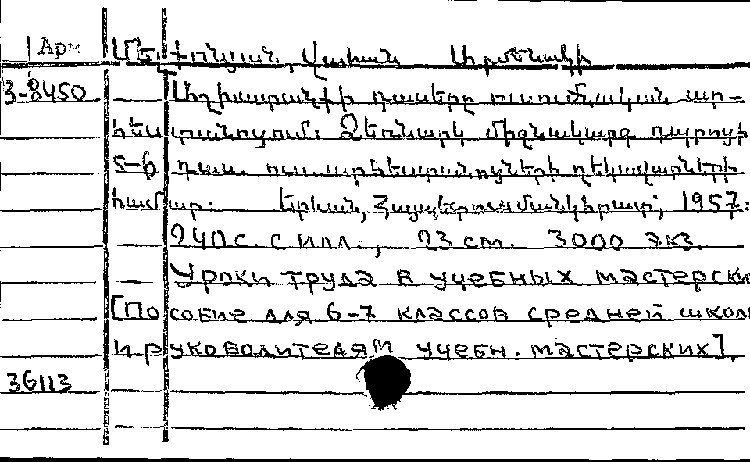 Арм Մելքոնյան, Վահան Արմենակի
3-8450 Աշխատանքի դասերը ուսումնական ար-
հեստանոցում: Ձեռնարկ միջնակարգ դպրոցի
5-6 դաս. ուս. արհեստանոցների ղեկավարների
համար: Երևան, Հայպետուսմանկհրատ, 1957:
240 с. с илл., 23 см. 3000 экз.
Уроки труда в учебных мастерски
[Пособие для 6-7 классов средней школ
и руководителям учебн. мастерских].
36113